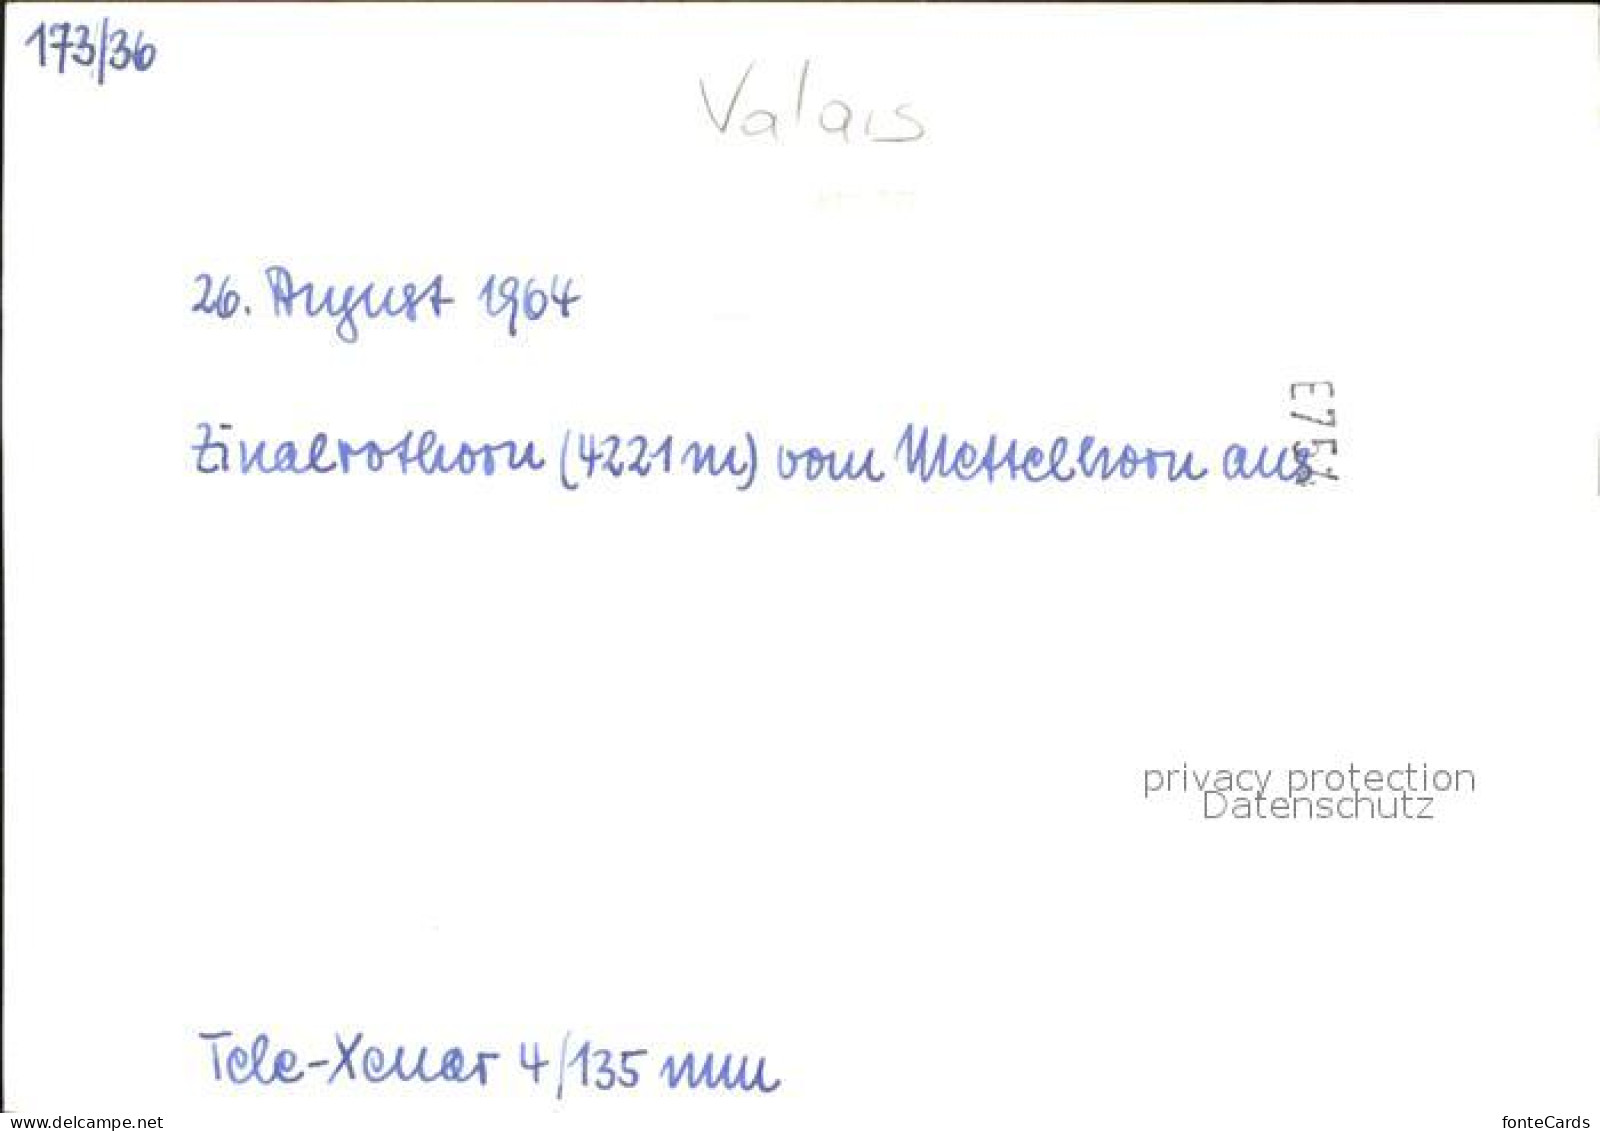 173/36
Valais
26. August 1964
Zinalrothorn (4221 m) vom Mettelhorn aus
privacy protection
Datenschutz
Tele-Xenar 4/135 mm
www.delcampe.net
fonteCards